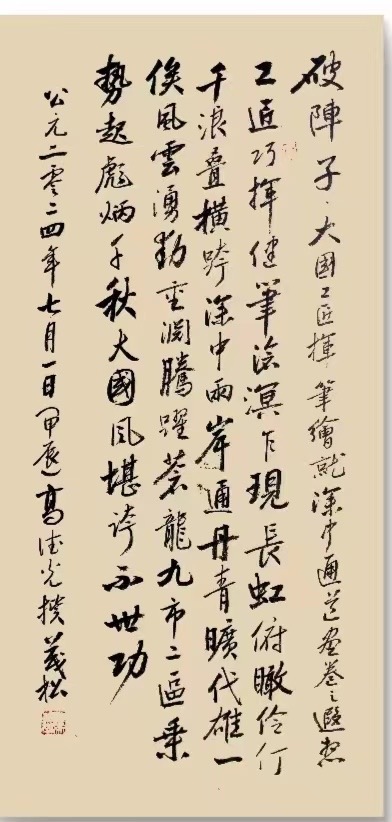 破陣子·大國工匠揮筆繪就深中通道畫卷之遐想
工匠巧揮健筆滄溟乍現長虹俯瞰伶仃
千浪疊橫跨深中兩岸通丹青曠代雄一
俟風雲湧動重淵騰躍蒼龍九市二區乘
勢起彪炳千秋大國風堪誇不世功
公元二零二四年七月一日(甲辰)高德光撰 松